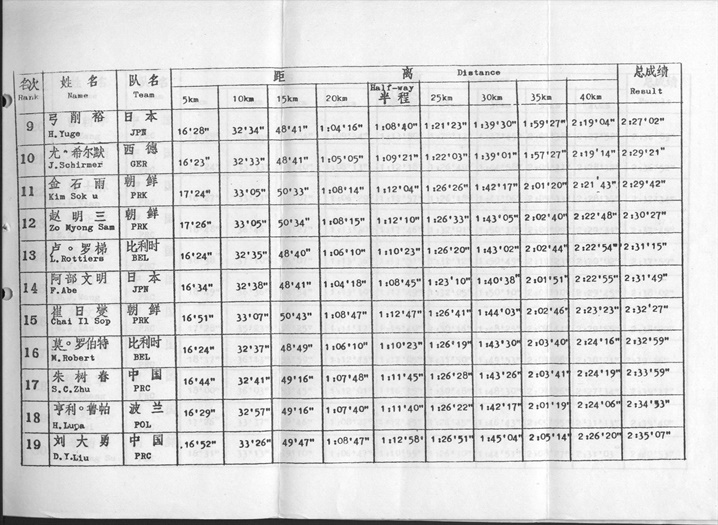 名次 姓名 队名 距离 Distance 总成绩
Rank Name Team 5km 10km 15km 20km Half-way 半程 25km 30km 35km 40km Result
9 弓削裕 日本 16'28" 32'34" 48'41" 1:04'16" 1:08'40" 1:21'23" 1:39'30" 1:59'27" 2:19'04" 2:27'02"
H.Yuge JPN
10 尤·希尔默 西德 16'23" 32'33" 48'41" 1:05'05" 1:09'21" 1:22'03" 1:39'01" 1:57'27" 2:19'14" 2:29'21"
J.Schirmer GER
11 金石雨 朝鲜 17'24" 33'05" 50'33" 1:08'14" 1:12'04" 1:26'26" 1:42'17" 2:01'20" 2:21'43" 2:29'42"
Kim Sok u PRK
12 赵明三 朝鲜 17'26" 33'05" 50'34" 1:08'15" 1:12'10" 1:26'33" 1:43'05" 2:02'40" 2:22'48" 2:30'27"
Zo Myong Sam PRK
13 卢·罗梯 比利时 16'24" 32'35" 48'40" 1:06'10" 1:10'23" 1:26'20" 1:43'02" 2:02'44" 2:22'54" 2:31'15"
L.Rottiers BEL
14 阿部文明 日本 16'34" 32'38" 48'41" 1:04'18" 1:08'45" 1:23'10" 1:40'38" 2:01'51" 2:22'55" 2:31'49"
F.Abe JPN
15 崔日燮 朝鲜 16'51" 33'07" 50'43" 1:08'47" 1:12'47" 1:26'41" 1:44'03" 2:02'46" 2:23'23" 2:32'27"
Chai Il Sop PRK
16 莫·罗伯特 比利时 16'24" 32'37" 48'49" 1:06'10" 1:10'23" 1:26'19" 1:43'30" 2:03'40" 2:24'16" 2:32'59"
M.Robert BEL
17 朱树春 中国 16'44" 32'41" 49'16" 1:07'48" 1:11'45" 1:26'28" 1:43'26" 2:03'41" 2:24'19" 2:33'59"
S.C.Zhu PRC
18 亨利·鲁帕 波兰 16'29" 32'57" 49'16" 1:07'40" 1:11'40" 1:26'22" 1:42'17" 2:01'19" 2:24'06" 2:34'53"
H.Lupa POL
19 刘大勇 中国 16'52" 33'26" 49'47" 1:08'47" 1:12'58" 1:26'51" 1:45'04" 2:05'14" 2:26'20" 2:35'07"
D.Y.Liu PRC